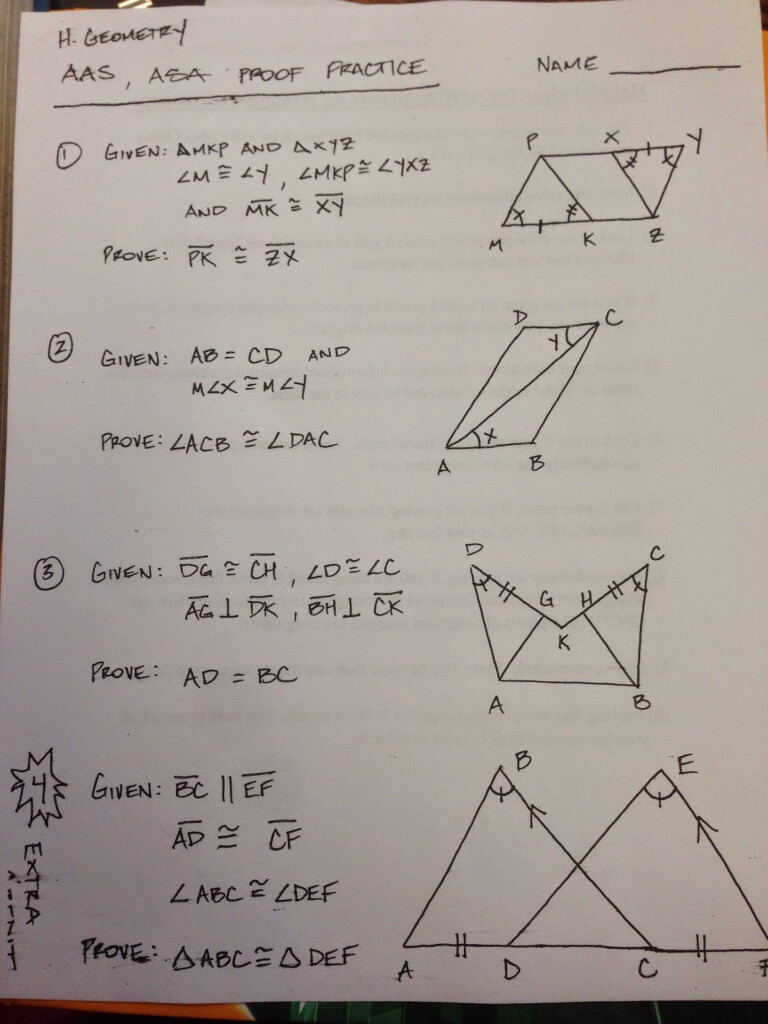 H. GEOMETRY
AAS, ASA PROOF PRACTICE
NAME
① GIVEN: ΔMKP AND ΔXYZ
∠M ≅ ∠Y, ∠MKP ≅ ∠YXZ
AND M̅K̅ ≅ X̅Y̅
PROVE: P̅K̅ ≅ Z̅X̅
P X Y
M K Z
② GIVEN: AB = CD AND
M∠X ≅ M∠Y
PROVE: ∠ACB ≅ ∠DAC
D C
Y
X
A B
③ GIVEN: D̅G̅ ≅ C̅H̅, ∠D ≅ ∠C
A̅G̅ ⊥ D̅K̅, B̅H̅ ⊥ C̅K̅
PROVE: AD = BC
D C
G H
K
A B
4 EXTRA
GIVEN: B̅C̅ || E̅F̅
A̅D̅ ≅ C̅F̅
∠ABC ≅ ∠DEF
PROVE: ΔABC ≅ ΔDEF
B E
A D C F